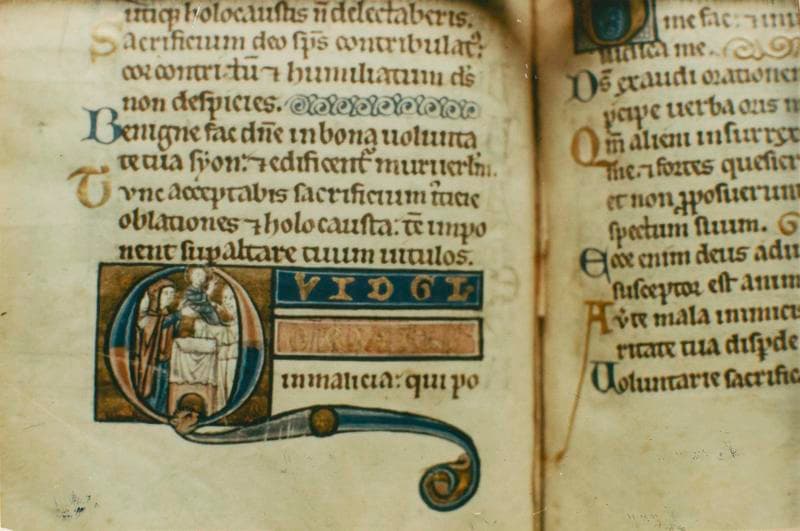 utiq; holocaustis n̄ delectaberis.
Sacrificium deo sp̄s contribulat᷒:
cor contritū ⁊ humiliatum d̄s
non despicies.
Benigne fac dn̄e in bona uolunta
te tua syon: ⁊ edificent᷒ muri ierlm̄.
Tvnc acceptabis sacrificium iusticie
oblationes ⁊ holocausta: tc̄ impo
nent sup altare tuum uitulos.
QVID GL
in malicia: qui po
ine fac: ⁊ in ui
iudica me.
Ds̄ exaudi orationem
pcipe uerba oris m
Qm̄ alieni insurrex
me: ⁊ fortes quesier
et non pposuerunt
spectum suum.
Ecce enim deus adiu
susceptor est anim
Auˀte mala inimicis
ritate tua dispde
Voluntarie sacrific